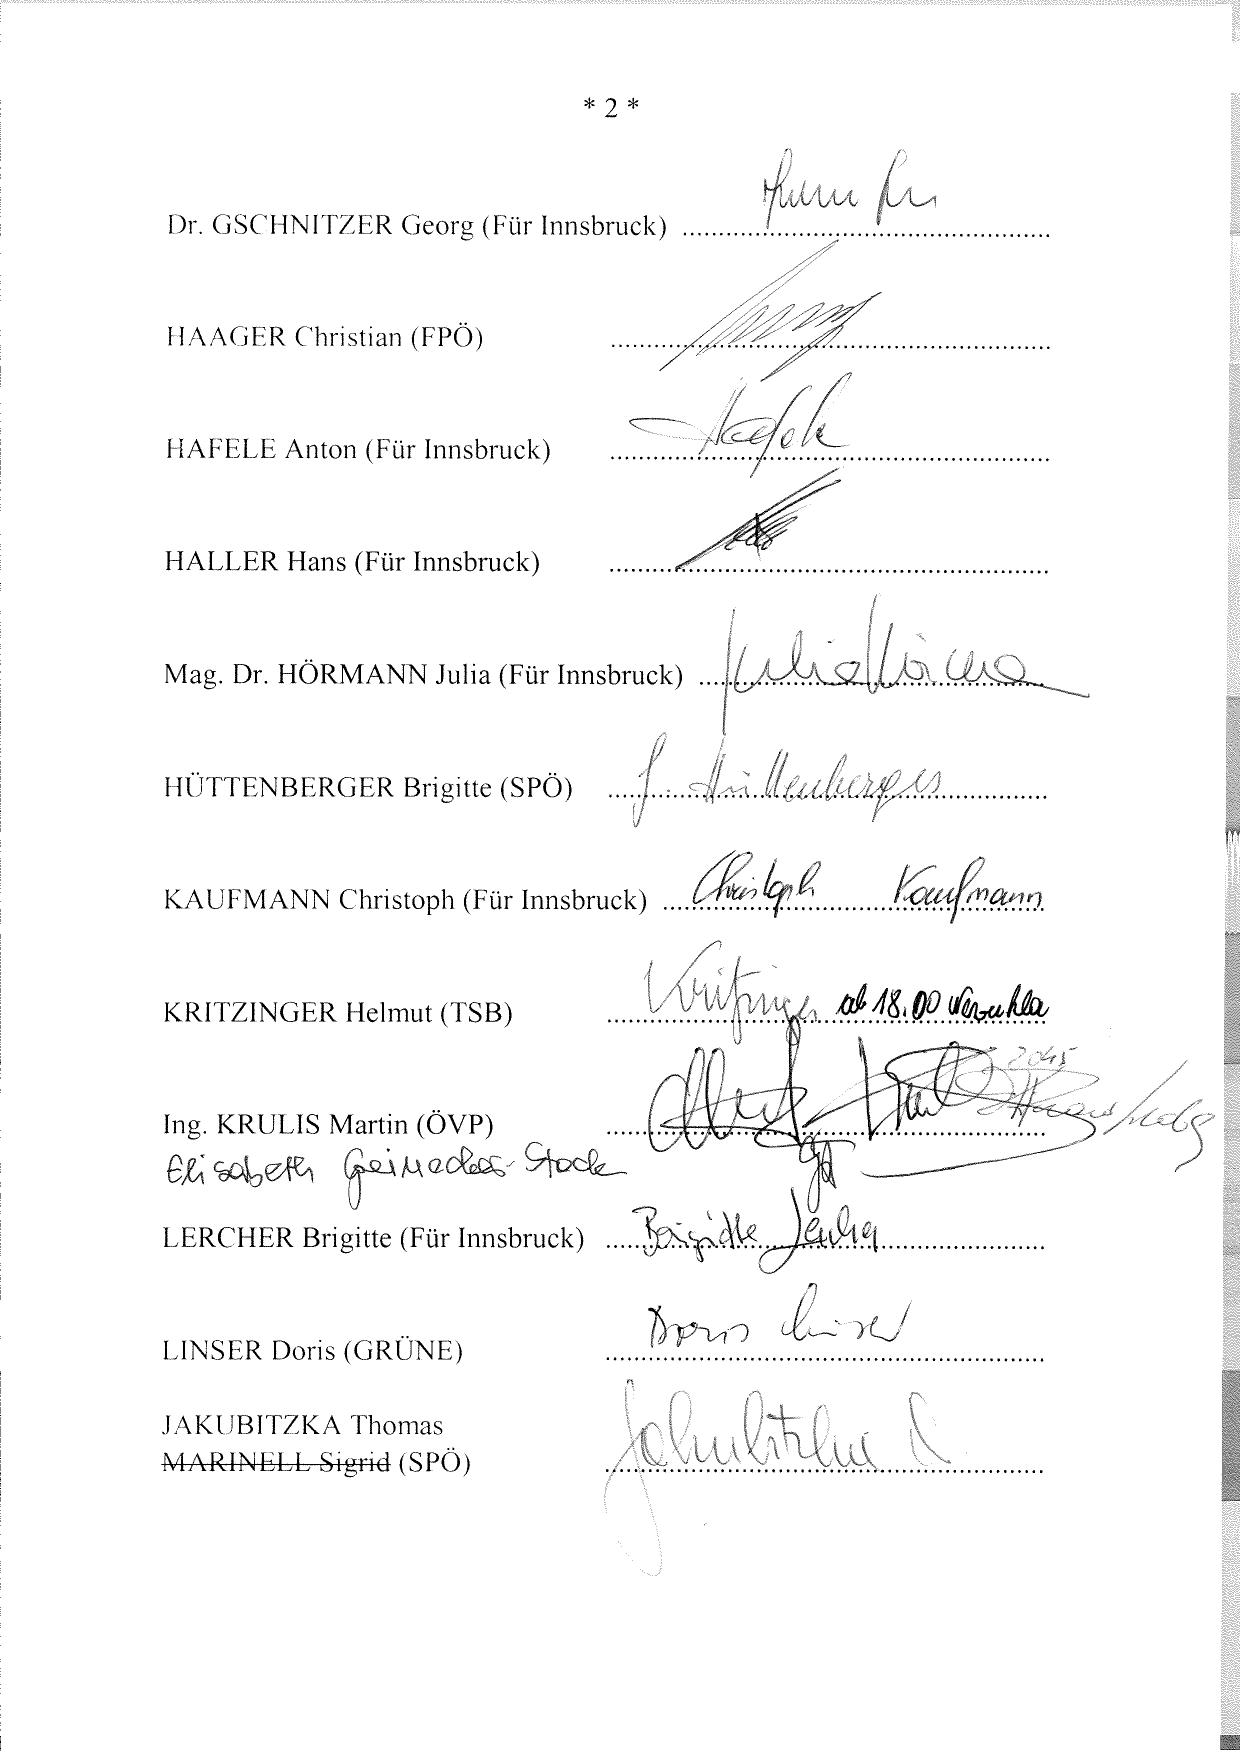 * 2 *
Dr. GSCHNITZER Georg (Für Innsbruck) ..................................................
HAAGER Christian (FPÖ) ............................................................
HAFELE Anton (Für Innsbruck) ............................................................ Hafele
HALLER Hans (Für Innsbruck) ............................................................
Mag. Dr. HÖRMANN Julia (Für Innsbruck) ............................................... Julia Hörma
HÜTTENBERGER Brigitte (SPÖ) ............................................................ Hüttenberger
KAUFMANN Christoph (Für Innsbruck) .................................................... Christoph Kaufmann
KRITZINGER Helmut (TSB) ............................................................ Kritzinger ab 18.00
2045
Ing. KRULIS Martin (ÖVP) ............................................................
Elisabeth
LERCHER Brigitte (Für Innsbruck) ............................................................ Brigitte Lercher
LINSER Doris (GRÜNE) ............................................................ Doris Linser
JAKUBITZKA Thomas
MARINELL Sigrid (SPÖ) ............................................................ Jakubitzka